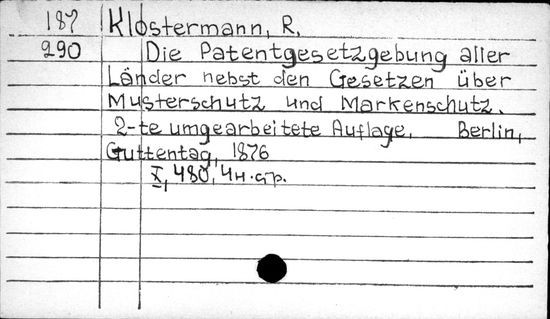 187 Klostermann, R.
290 Die Patentgesetzgebung aller
Länder nebst den Gesetzen über
Musterschutz und Markenschutz.
2-te umgearbeitete Auflage. Berlin,
Guttentag, 1876
X, 480, 4н.ср.